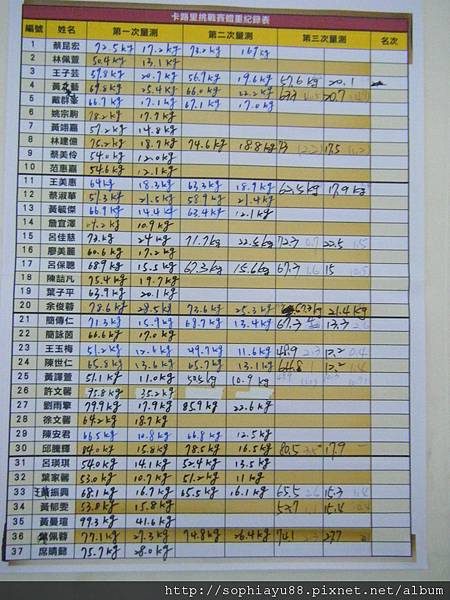 卡路里挑戰賽體重紀錄表
編號 姓名 第一次量測 第二次量測 第三次量測 名次
1 蔡昆宏 72.5kg 17.2kg 73.2kg
2 林佩萱 50.4kg 13.1kg
3 王子芸 57.8kg 20.7kg 56.7kg 19.6kg 57.6kg 20.1
4 69.8kg 25.4kg 66.0kg 22.2kg
5 戴群峯 66.7kg 17.1kg 67.1kg 17.0kg
6 姚宗駒 78.2kg 17.7kg
7 黃翊嘉 57.2kg 14.8kg
8 林建億 75.2kg 18.7kg 74.6kg 18.8kg 17.5
9 蔡美伶 54.0kg 12.0kg
10 范惠嘉 54.6kg 12.1kg
11 王美惠 64kg 18.3kg 63.3kg 18.9kg 62.5kg 17.9kg
12 蔡淑華 57.3kg 21.5kg 58.9kg 21.4kg
13 黃毓傑 66.9kg 14.4kg 63.4kg 12.1kg
14 詹宜澤 10.9kg
15 呂佳慈 73kg 24kg 71.7kg 22.6kg 72.3 22.5
16 廖美麗 60.6kg 17.2kg
17 呂保聰 68.9kg 15.5kg 67.3kg 15.6kg 67.3 15
18 陳喆凡 75.4kg 19.7kg
19 葉子平 63.9kg 20.1kg
20 余俊蓉 78.6kg 28.5kg 73.6kg 25.3kg 21.4kg
21 簡傳仁 71.3kg 15.9kg 68.7kg 13.4kg 67.3 13.3
22 簡詠茵 66.6kg 17.0kg
23 王玉梅 51.2kg 12.6kg 49.7kg 11.6kg 48.9 12.2
24 陳世仁 65.8kg 13.6kg 65.7kg 13.1kg 64.8 12.2
25 黃譯萱 51.1kg 11.0kg 50.5kg 10.9kg
26 許文馨 75.8kg 35.2kg
27 劉雨擎 79.9kg 17.9kg 85.9kg 22.6kg
28 徐文馨 64.2kg 18.7kg
29 陳安君 66.5kg 10.8kg 66.8kg 12.5kg
30 邱騰輝 84.0kg 15.8kg 78.5kg 16.5kg 80.5 17.9
31 呂琪琪 54.0kg 14.1kg 52.4kg 13.5kg
32 葉家馨 53.0kg 10.7kg 51.2kg 11kg
33 王振興 68.1kg 16.7kg 65.5kg 16.1kg 65.5 15.3
34 黃郁雯 53.0kg 15.8kg 53.7 15.4
35 黃曼瑄 99.3kg 41.6kg
36 77.1kg 27.3kg 74.8kg 26.4kg 74.1 27.7
37 席晴懿 75.7kg 28.0kg
http://sophiayu88.pixnet.net/album